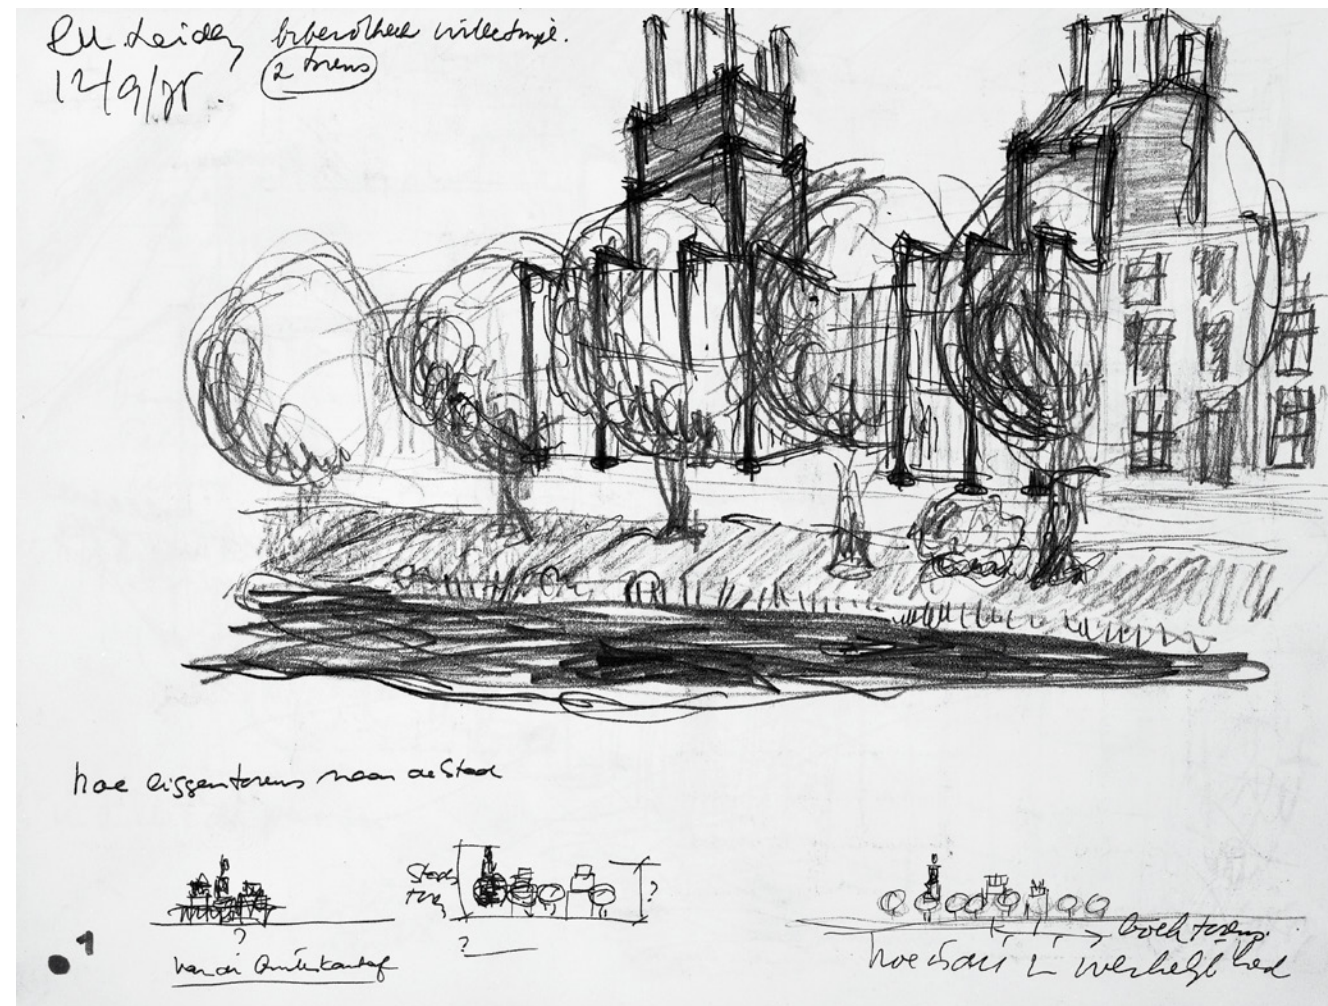 RU Leiden bibliotheek
12/9/75.
2 torens
hoe liggen torens naar de Stad
Stads
toren
?
?
?
van de buitenkant af
boektorens.
hoe is dit in werkelijkheid
1